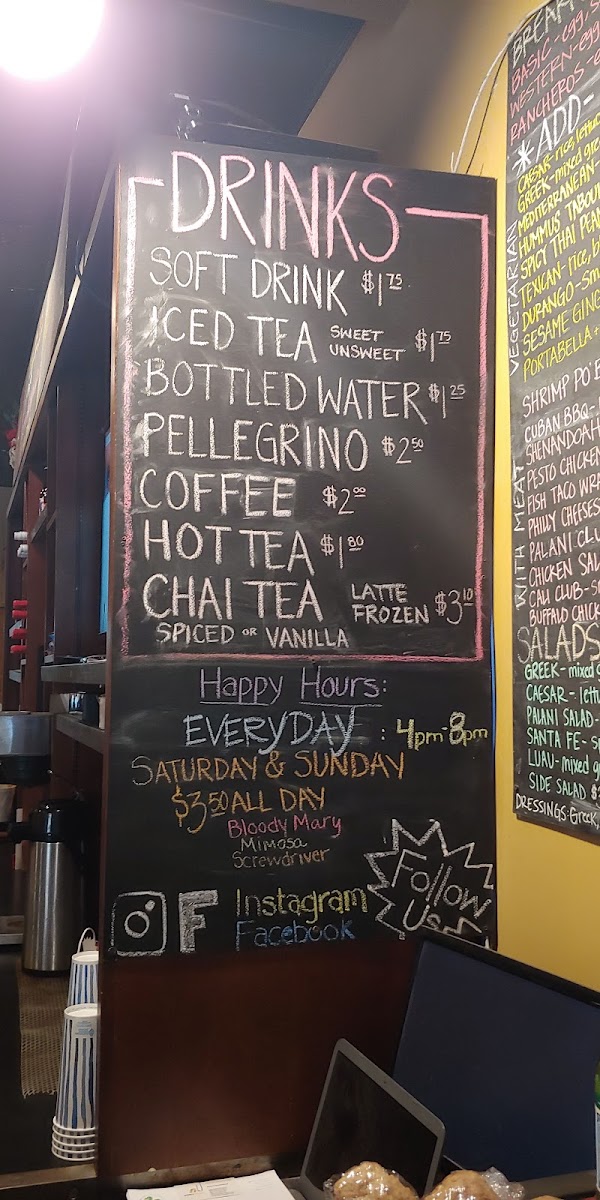 DRINKS
SOFT DRINK $1.75
ICED TEA SWEET UNSWEET $1.75
BOTTLED WATER $1.25
PELLEGRINO $2.50
COFFEE $2.00
HOT TEA $1.80
CHAI TEA LATTE FROZEN $3.10
SPICED OR VANILLA
Happy Hours:
EVERYDAY : 4pm-8pm
SATURDAY & SUNDAY
$3.50 ALL DAY
Bloody Mary
Mimosa
Screwdriver
Follow
Us
F Instagram
Facebook
BASIC - egg,
WESTERN - egg
RANCHEROS -
*ADD-
VEGETARIAN
CAESAR - rice, lettuc
GREEK - mixed gre
MEDITERRANEAN -
HUMMUS TABOU
SPICY THAI PEAN
TEXICAN - rice, b
DURANGO - Sm
SESAME GING
PORTABELLA +
WITH MEAT
SHRIMP PO' B
CUBAN BBQ -
SHENANDOAH
PESTO CHICKEN
FISH TACO WRA
PHILLY CHEESES
PALANI CLU
CHICKEN SAL
CALI CLUB - s
BUFFALO CHICK
SALADS
GREEK - mixed g
CAESAR - lettu
PALANI SALAD -
SANTA FE - S
LUAU - mixed g
SIDE SALAD $
DRESSINGS: Greek,